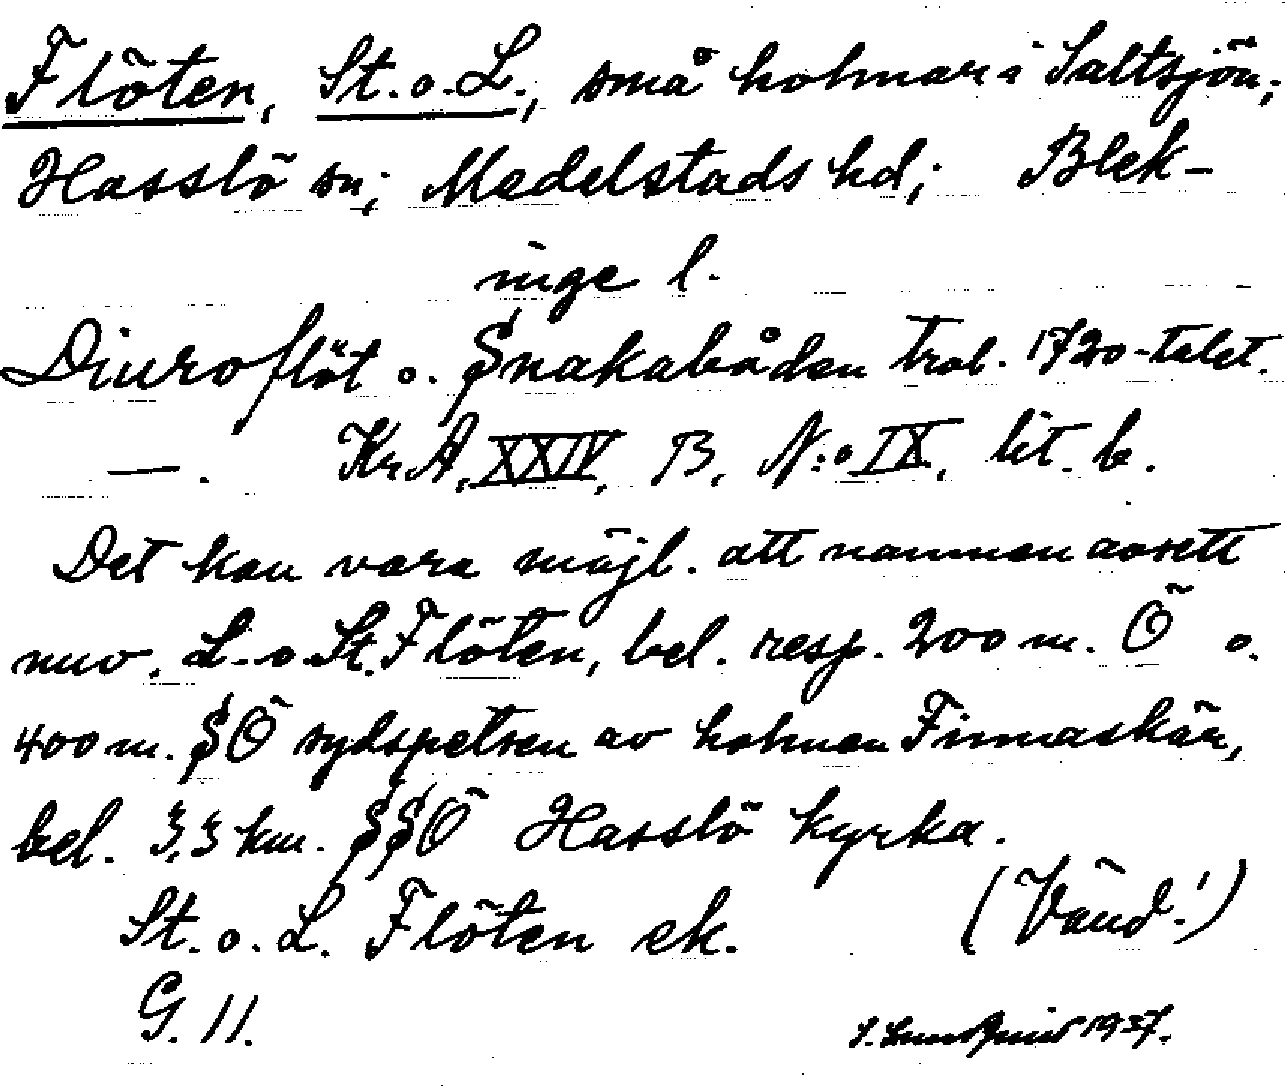 Flöten, St. o. L., små holmar i Saltsjön;
Hasslö sn; Medelstads hd; Blek-
inge l.
Diuroflöt o. Snakabåden trol. 1720-talet.
—. Kr.A. XXIV, B, N:o IX, lit. b.
Det kan vara möjl. att namnen avsett
nuv. L. o. St. Flöten, bel. resp. 200 m. Ö o.
400 m. SÖ sydspetsen av holmen Finnaskär,
bel. 3,3 km. SSÖ Hasslö kyrka.
St. o. L. Flöten ek. (Vänd!)
G. 11.
S. Lundquist 1937.